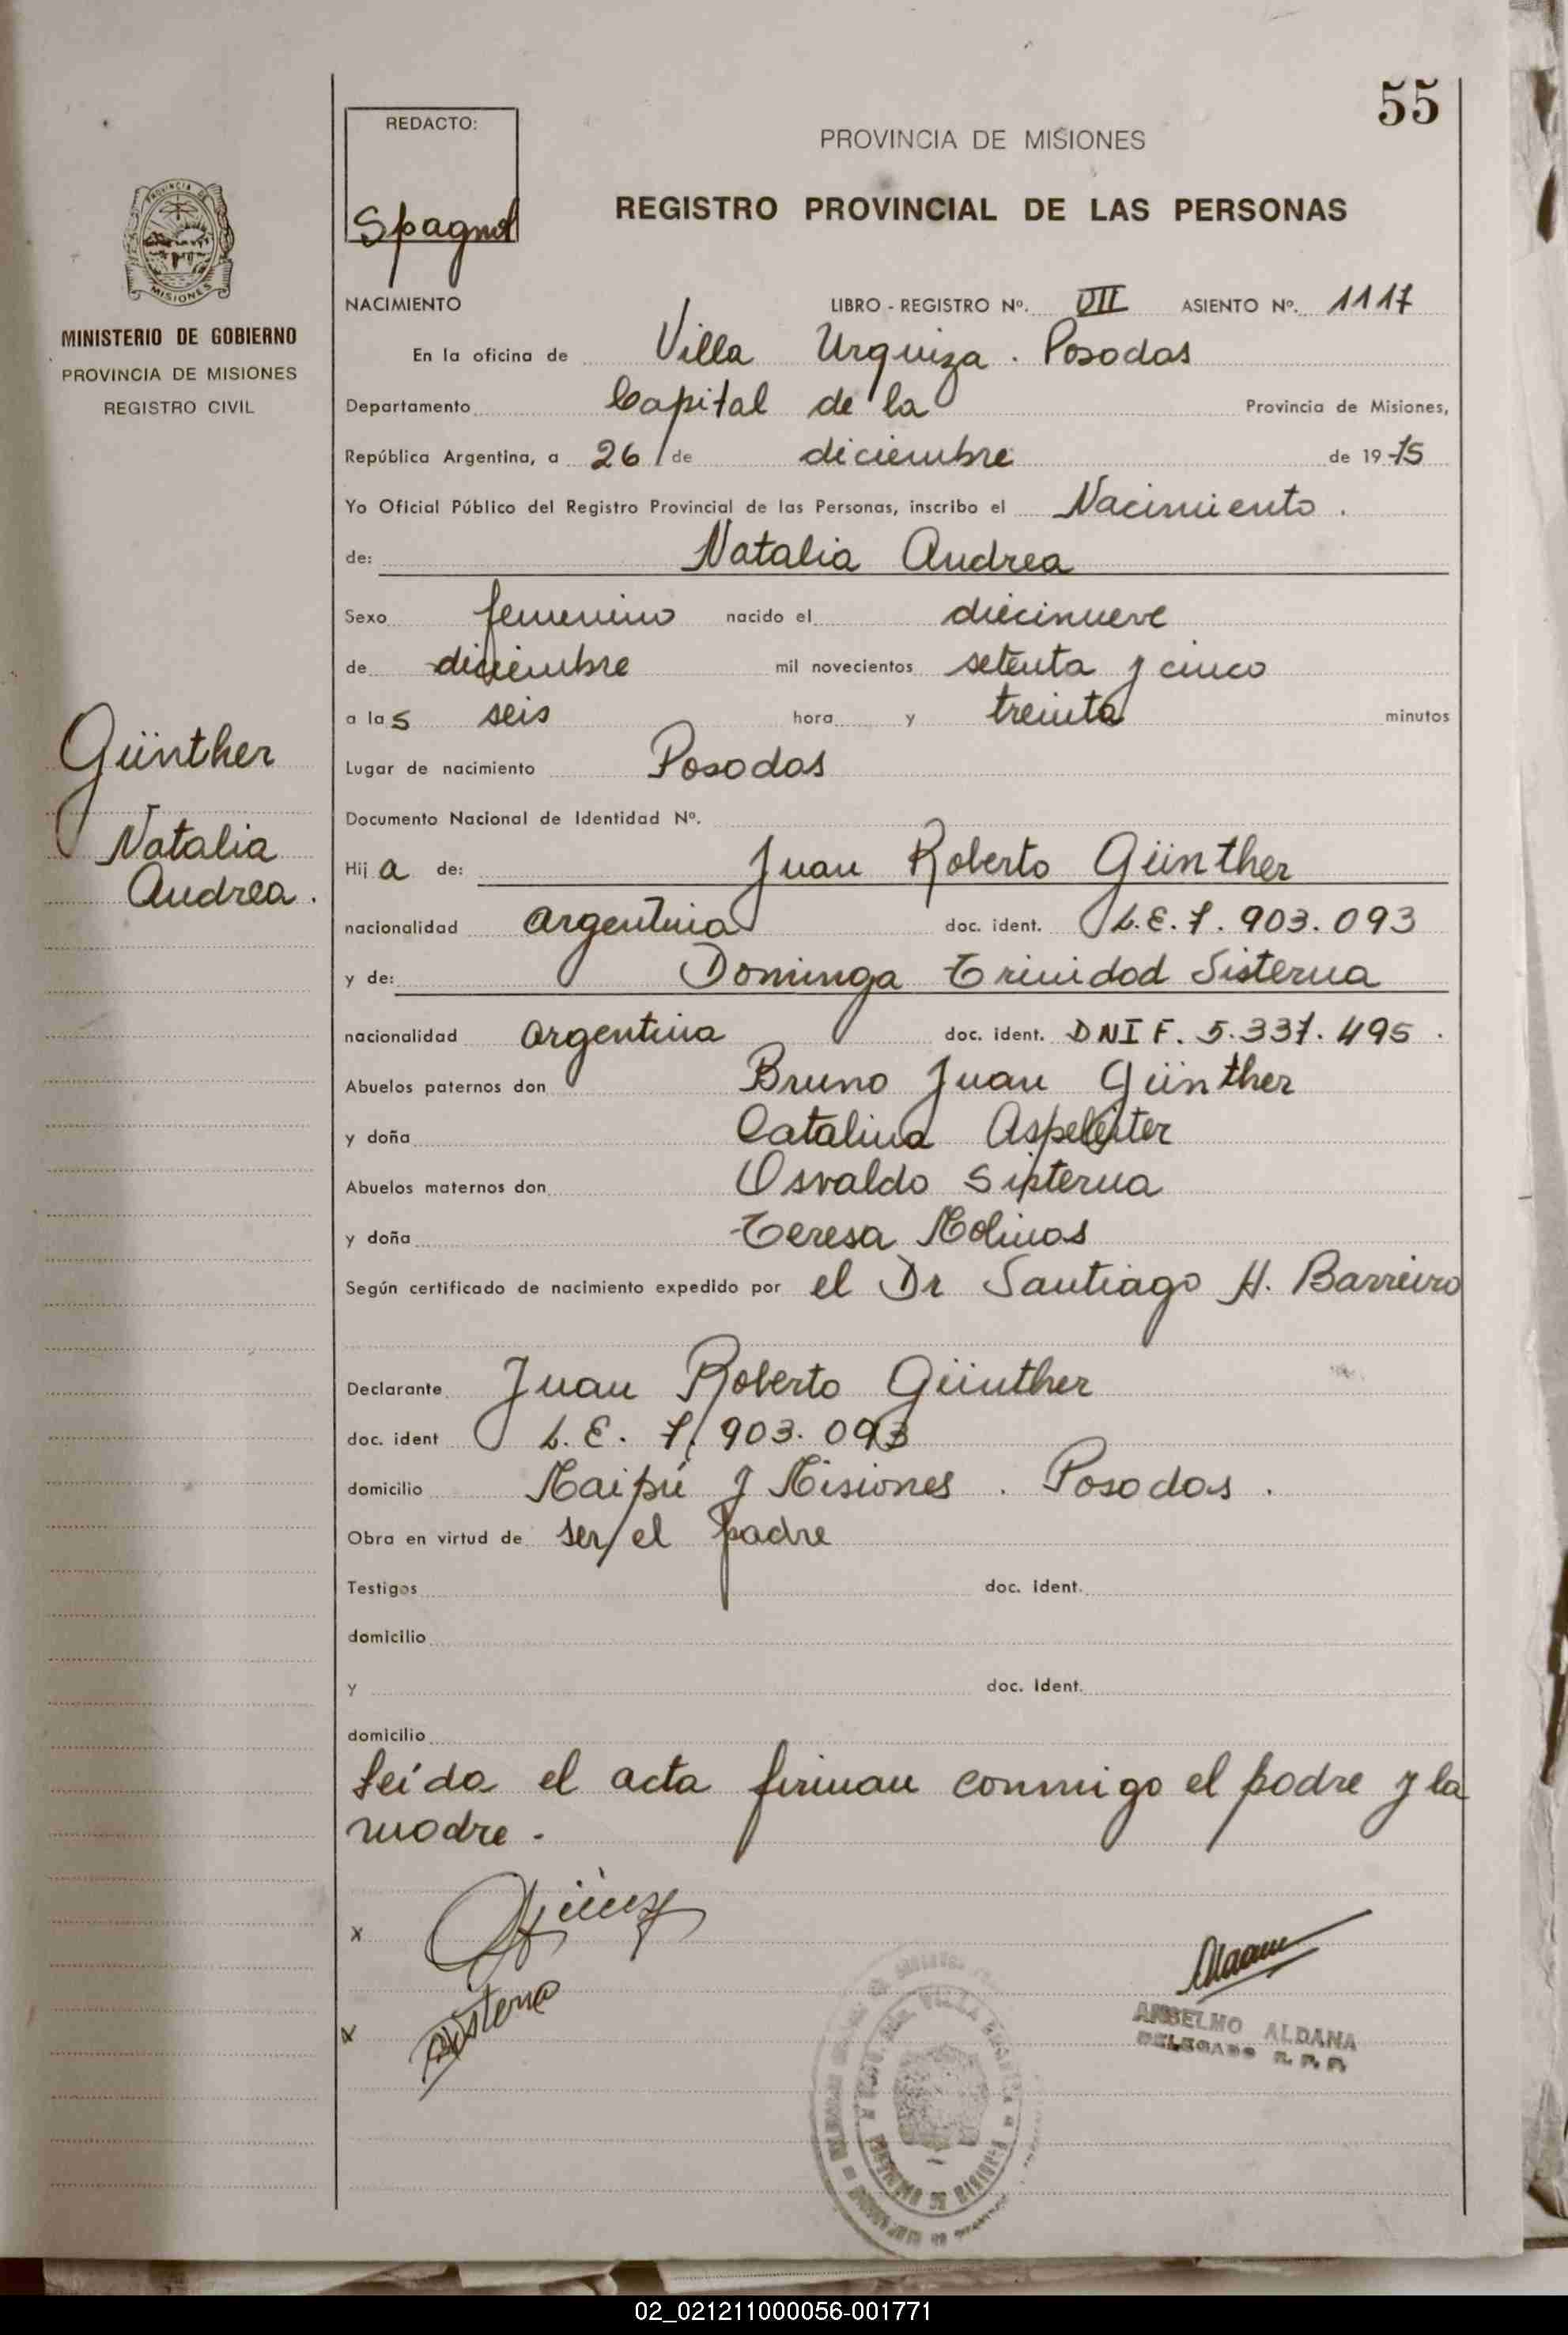 55
REDACTO:
Spagnol
PROVINCIA DE MISIONES
REGISTRO PROVINCIAL DE LAS PERSONAS
PROVINCIA DE
MISIONES
MINISTERIO DE GOBIERNO
PROVINCIA DE MISIONES
REGISTRO CIVIL
NACIMIENTO LIBRO - REGISTRO Nº. VII ASIENTO Nº. 1117
En la oficina de Villa Urquiza . Posadas
Departamento Capital de la Provincia de Misiones,
República Argentina, a 26 de diciembre de 1975
Yo Oficial Público del Registro Provincial de las Personas, inscribo el Nacimiento .
de: Natalia Andrea
Sexo femenino nacido el diecinueve
de diciembre mil novecientos setenta y cinco
a las seis hora y treinta minutos
Lugar de nacimiento Posadas
Documento Nacional de Identidad Nº.
Günther
Natalia
Andrea .
Hija de: Juan Roberto Günther
nacionalidad argentina doc. ident. L.E. 7. 903. 093
y de: Dominga Trinidad Sisterna
nacionalidad argentina doc. ident. DNI F. 5.337. 495 .
Abuelos paternos don Bruno Juan Günther
y doña Catalina Aspeleiter
Abuelos maternos don Osvaldo Sisterna
y doña Teresa Molinas
Según certificado de nacimiento expedido por el Dr Santiago H. Barreiro
Declarante Juan Roberto Günther
doc. ident L. E. 7. 903. 093
domicilio Maipú y Misiones . Posadas .
Obra en virtud de ser el padre
Testigos doc. ident.
domicilio
y doc. Ident.
domicilio
Leída el acta firman conmigo el padre y la
madre .
x
x Sisterna
ANSELMO ALDANA
DELEGADO R. P. P.
02_021211000056-001771